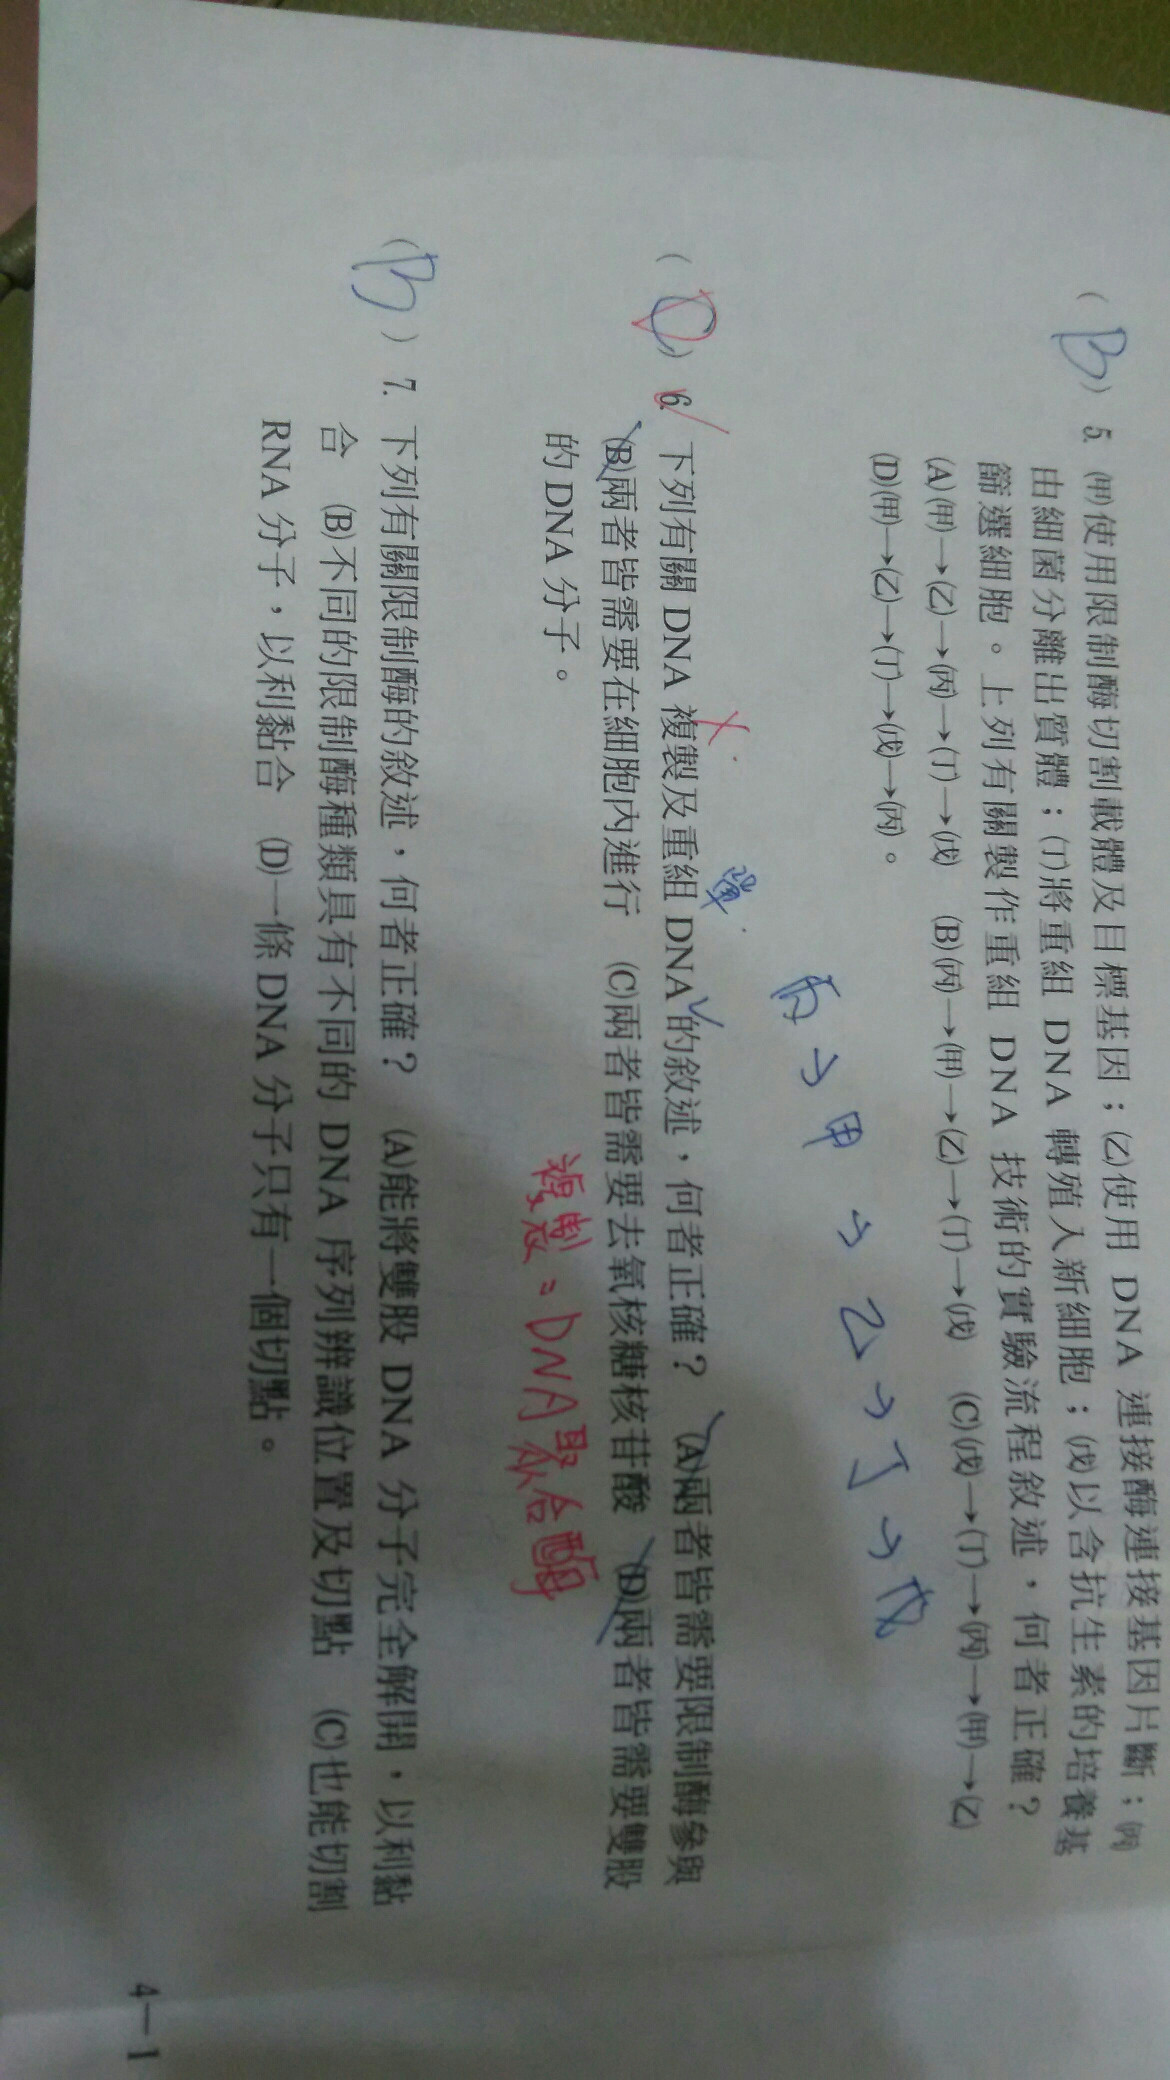 (B) 5. (甲)使用限制酶切割載體及目標基因；(乙)使用 DNA 連接酶連接基因片斷；(丙)
由細菌分離出質體；(丁)將重組 DNA 轉殖入新細胞；(戊)以含抗生素的培養基
篩選細胞。上列有關製作重組 DNA 技術的實驗流程敘述，何者正確？
(A)(甲)→(乙)→(丙)→(丁)→(戊) (B)(丙)→(甲)→(乙)→(丁)→(戊) (C)(戊)→(丁)→(丙)→(甲)→(乙)
(D)(甲)→(乙)→(丁)→(戊)→(丙)。
丙→甲→乙→丁→戊
單
( ) 6. 下列有關 DNA 複製及重組 DNA 的敘述，何者正確？ (A)兩者皆需要限制酶參與
(B)兩者皆需要在細胞內進行 (C)兩者皆需要去氧核糖核苷酸 (D)兩者皆需要雙股
的 DNA 分子。
複製 = DNA聚合酶
(B) 7. 下列有關限制酶的敘述，何者正確？ (A)能將雙股 DNA 分子完全解開，以利黏
合 (B)不同的限制酶種類具有不同的 DNA 序列辨識位置及切點 (C)也能切割
RNA 分子，以利黏合 (D)一條 DNA 分子只有一個切點。
4—1